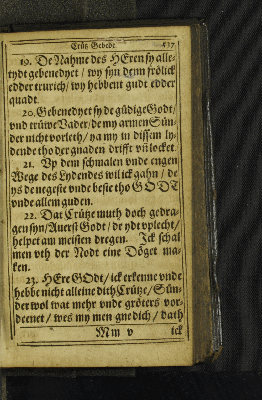 Crütz Gebede. 537
19. De Nahme des HEren sy alle-
tydt gebenedyet / wy syn denn frölick
edder trurich / wy hebbent gudt edder
quadt.
20. Gebenedyet sy de güdige Godt /
vnd trüwe Vader / de my armen Sün-
der nicht vorleth / ya my in dissem ly-
dende tho der gnaden drifft vñ locket.
21. Vp dem schmalen vnde engen
Wege des Lydendes wil ick gahn / de
ys de negeste vnde beste tho GODT
vnde allem guden.
22. Dat Crütze muth doch gedra-
gen syn / Auerst Godt / de ydt vplecht /
helpet am meisten dregen. Ick schal
men vth der Nodt eine Döget ma-
ken.
23. HEre GOdt / ick erkenne vnde
hebbe nicht alleine dith Crütze / Sün-
der wol wat mehr vnde gröters vor-
deenet / wes my men gnedich / dath
Mm v ick